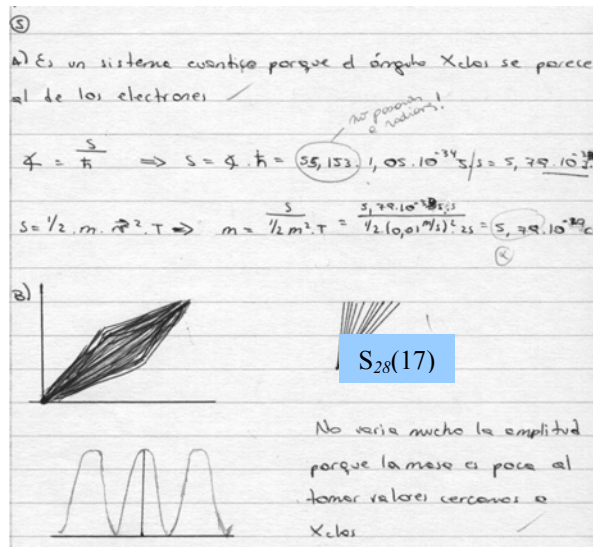 ⑤
A) Es un sistema cuantico porque el ángulo Xclos se parece
al de los electrones
no pasaron a radians!
∡ = S/ħ ⇒ S = ∡ . ħ = 55,153 . 1,05 . 10⁻³⁴ = 5,79 . 10
S = 1/2 . m . . T ⇒ m = S / 1/2 m² . T = / 1/2 (0,01 m/s)² . 2s = 5,79 . 10
B)
S28(17)
No varia mucho la amplitud
porque la masa es poca al
tomar valores cercanos a
Xclos